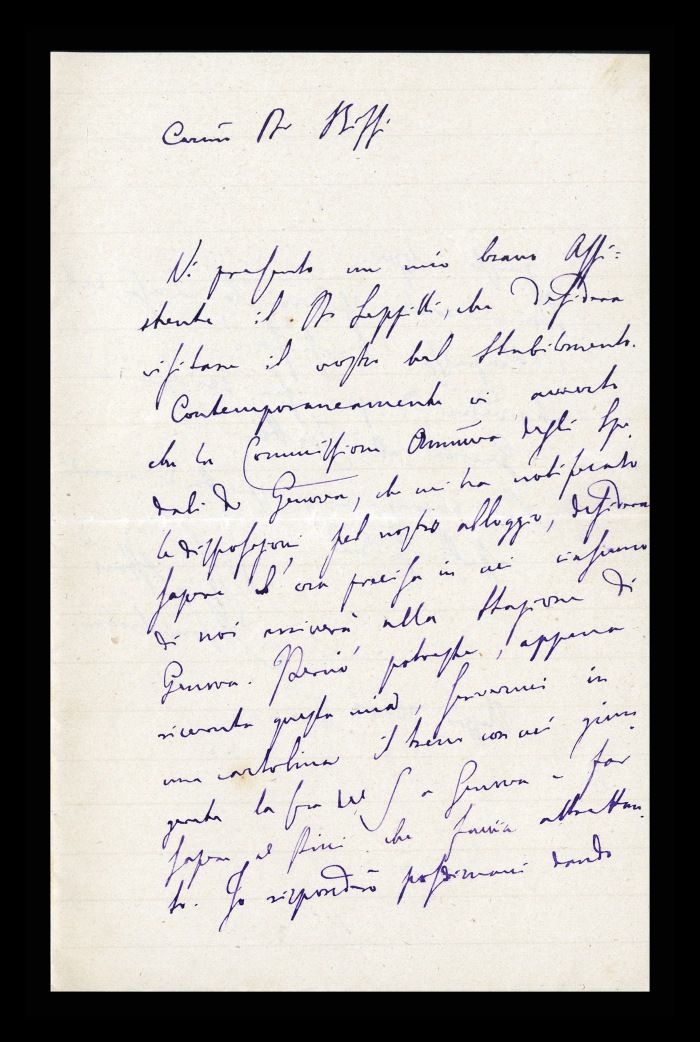 Carmo Dr Biffi
Vi presento un mio bravo Assi=
stente il Dr Seppilli, che desidera
visitare il vostro bel Stabilimento.
Contemporaneamente vi avverto
che la Commissione Ammva degli Spe
dali di Genova, che mi ha notificato
le disposizioni pel nostro alloggio, desidera
sapere l'ora precisa in cui ciascuno
di noi arriverà alla Stazione di
Genova. Perciò potreste, appena
ricevuta questa mia, scrivermi in
una cartolina il treno con cui giun
gerete la sera del 5 a Genova e far
sapere al Pini che faccia altrettan
to. Io risponderò possimani dando